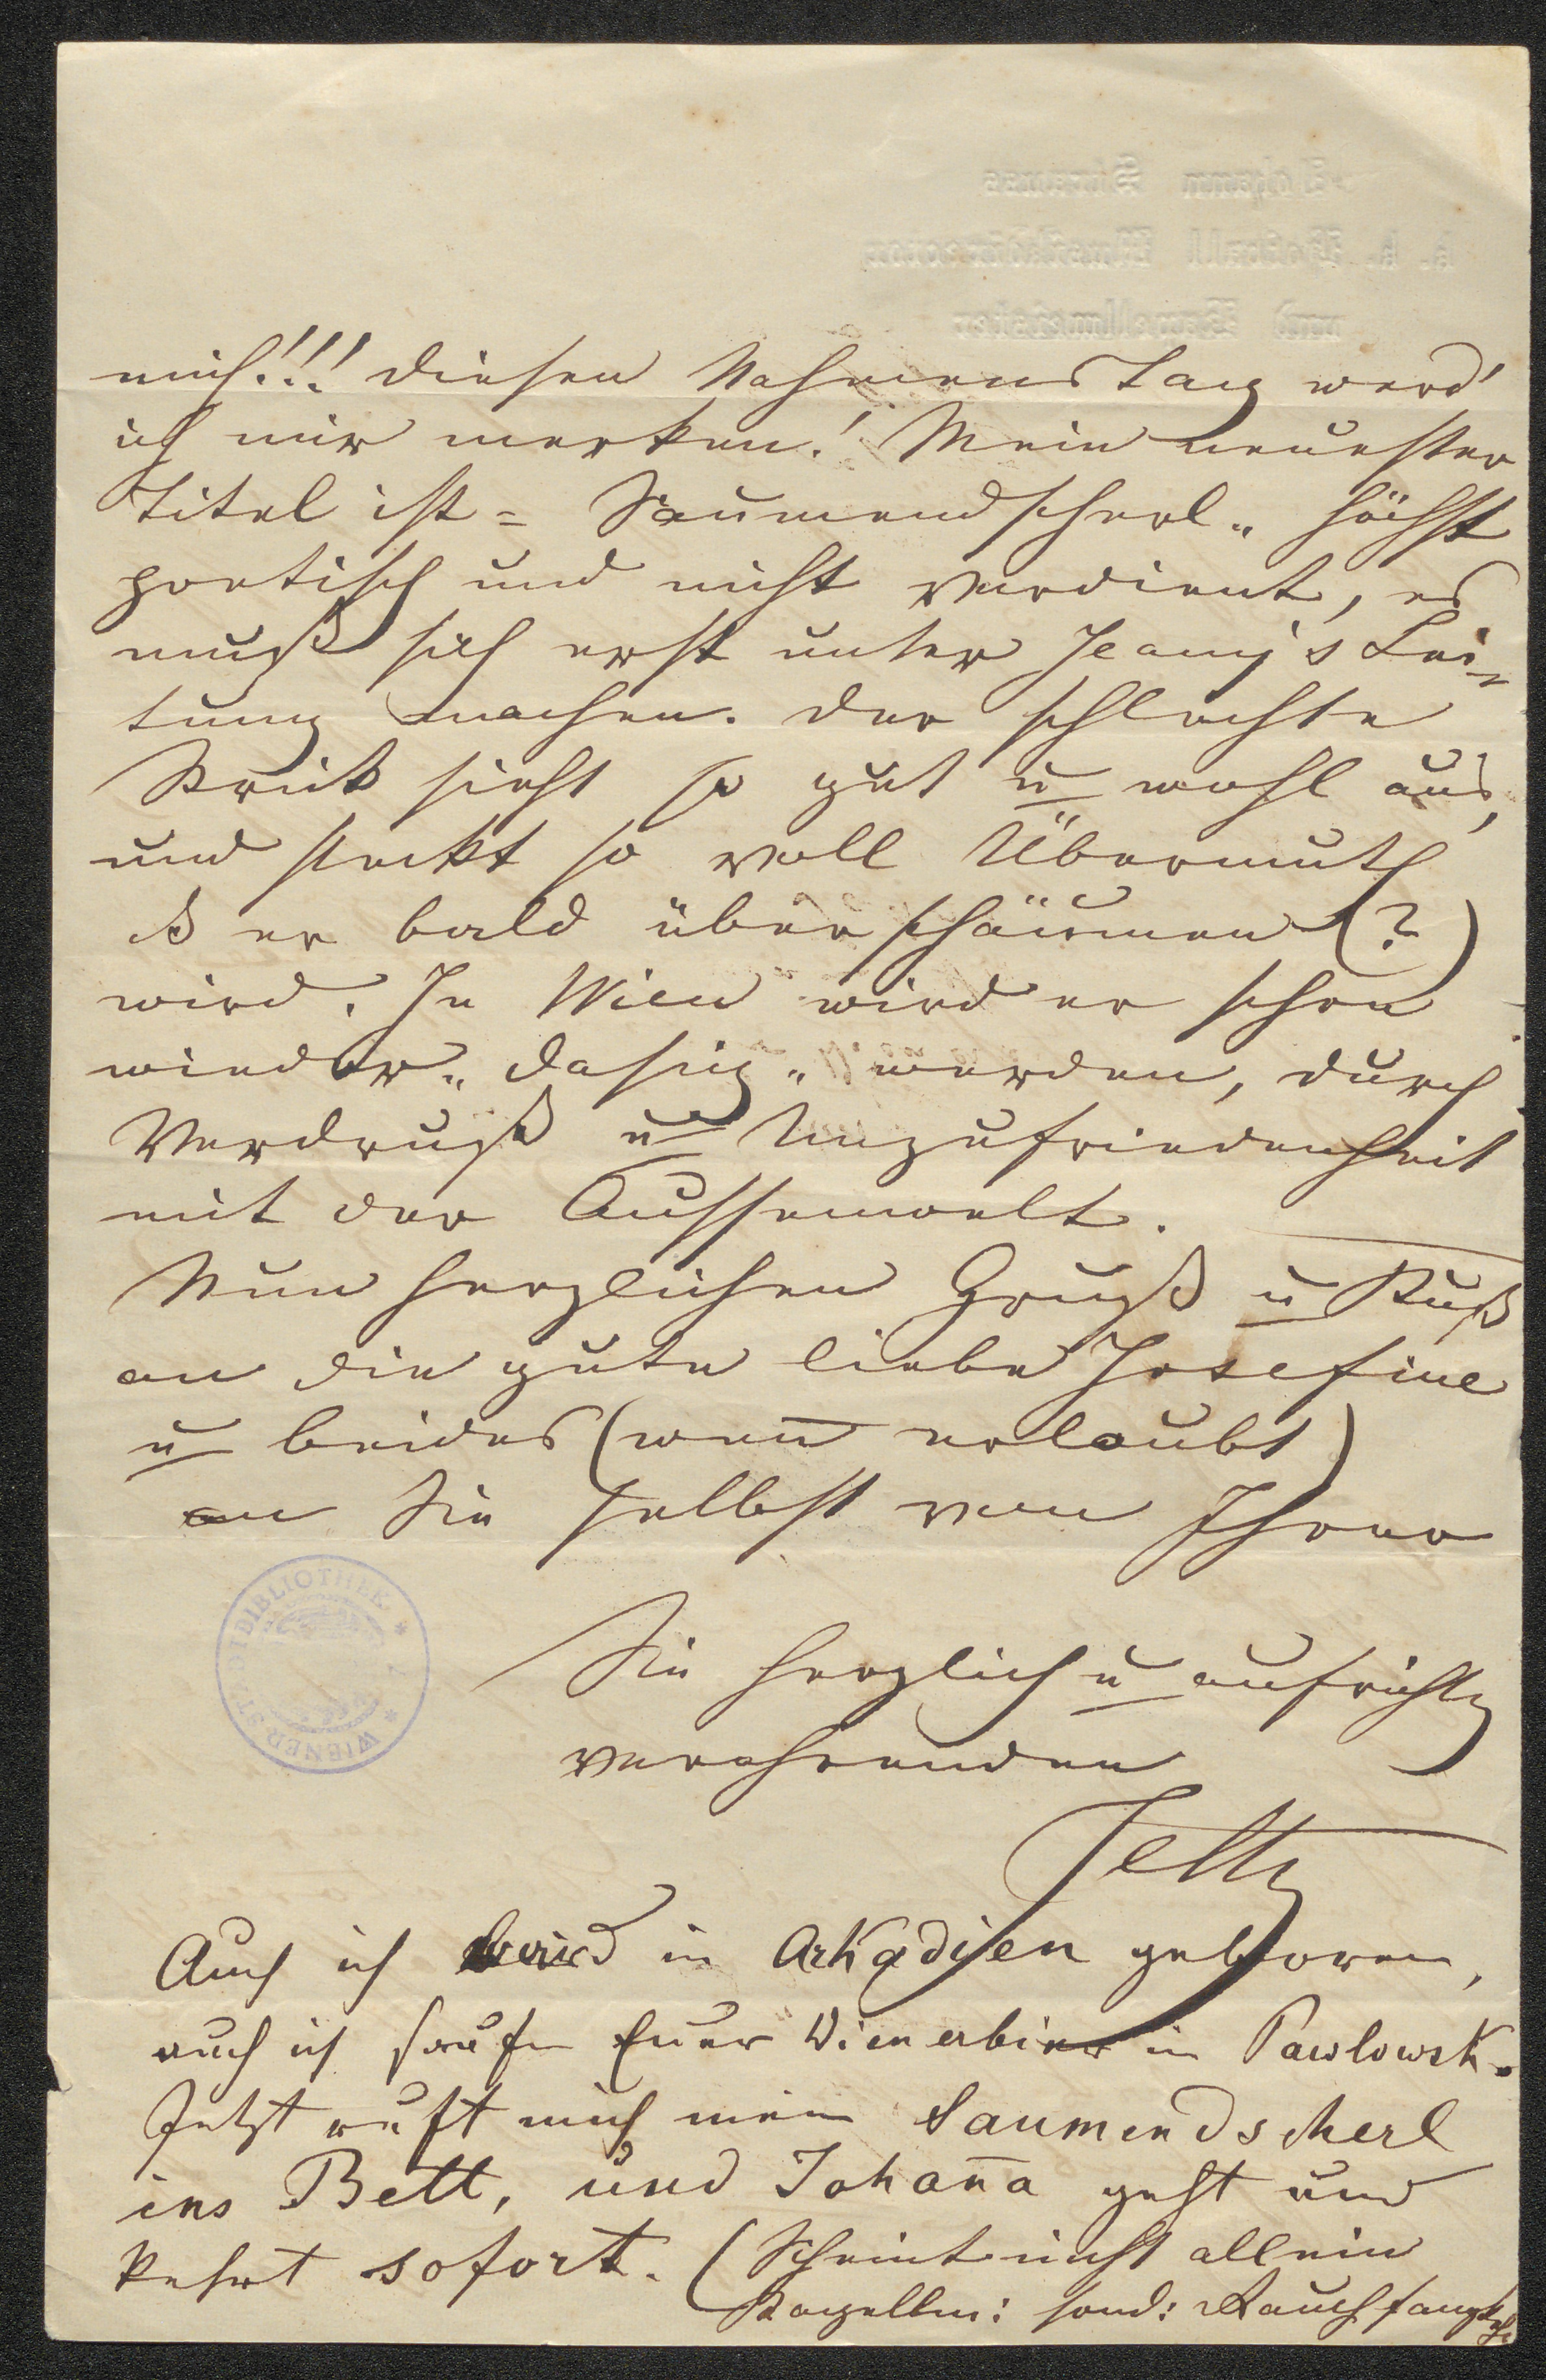 mich!!! diesen Nahmenstag werd'
ich mir merken! Mein neuester
Titel ist = Saumendscherl „ höchst
poetisch und nicht verdient, es
muß sich erst unter Jeany's Lei-
tung machen. der schlechte
Strick sieht so gut u wohl aus,
und steckt so voll Übermuth
ds er bald überschäumen (?)
wird. In Wien wird er schon
wieder „ dasig „ werden, durch
Verdruß u Unzufriedenheit
mit der Aussenwelt.
Nun herzlichen Gruß u Kuß
an die gute liebe Josefine
u beides (wen̄ erlaubt)
an Sie selbst von Ihrer
Sie herzlich u aufrichtig
verehrenden
Jetty
Auch ich in Arkadien geboren,
auch ich saufe Euer Wienerbier in Pawlowsk.
Jetzt ruft mich mein Saumendscherl
ins Bett, und Johan̄a geht und
kehrt sofort. (Scheint nicht allein
Kapellm: sond: Rauchfangkeh
WIENER STADTBIBLIOTHEK
Johann Strauss
k. k. Hofball Musikdirector
und Kapellmeister